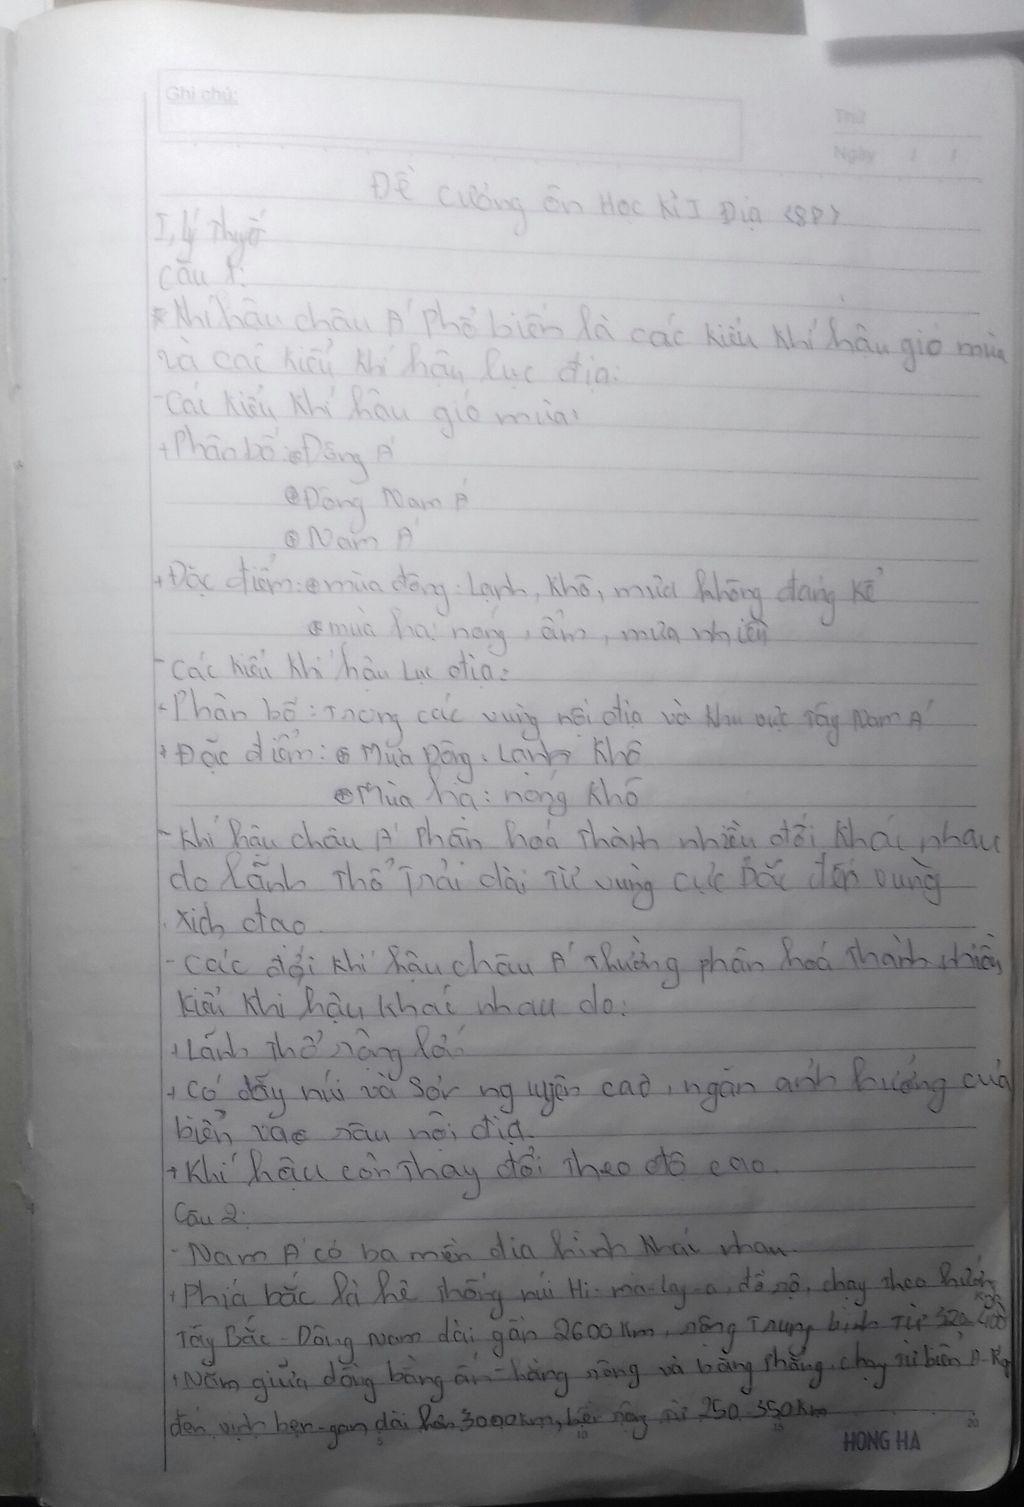 Ghi chú:
Thứ
Ngày / /
Đề cương ôn Học Kì I Địa (8Đ)
I, Lý Thyết
Câu 1:
* Khí hậu châu Á Phổ biến là các kiểu khí hậu gió mùa
và các kiểu khí hậu lục địa:
- Các kiểu khí hậu gió mùa:
+ Phân bố: Đông Á
Đông Nam Á
Nam Á
+ Đặc điểm: mùa đông: Lạnh, khô, mưa không đáng kể
mùa hạ: nóng, ẩm, mưa nhiều
- Các kiểu khí hậu Lục địa:
+ Phân bố: Trong các vùng nội địa và khu vực Tây Nam Á
+ Đặc điểm: Mùa Đông: Lạnh Khô
Mùa hạ: nóng khô
- Khí hậu châu Á Phân hoá Thành nhiều đới khác nhau
do lãnh Thổ Trải dài Từ vùng cực Bắc đến vùng
xích đạo.
- Các đới khí hậu châu Á Thường phân hoá Thành nhiều
kiểu khí hậu khác nhau do:
+ Lãnh Thổ rộng lớn
+ Có dãy núi và Sơn nguyên cao, ngăn ảnh hưởng của
biển vào sâu nội địa.
+ Khí hậu còn Thay đổi Theo độ cao.
Câu 2:
- Nam Á có ba miền địa hình khác nhau.
+ Phía bắc là hệ Thống núi Hi-ma-lay-a, đồ sộ, chạy Theo hướng
Tây Bắc - Đông Nam dài gần 2600km, rộng Trung bình Từ 320-400 Km
+ Nằm giữa đồng bằng ấn-hằng rộng và bằng Phẳng, chạy từ biển
đến vịnh ben-gan dài hơn 3000km, rộng từ 250-350Km
5 10 15 20
HONG HA